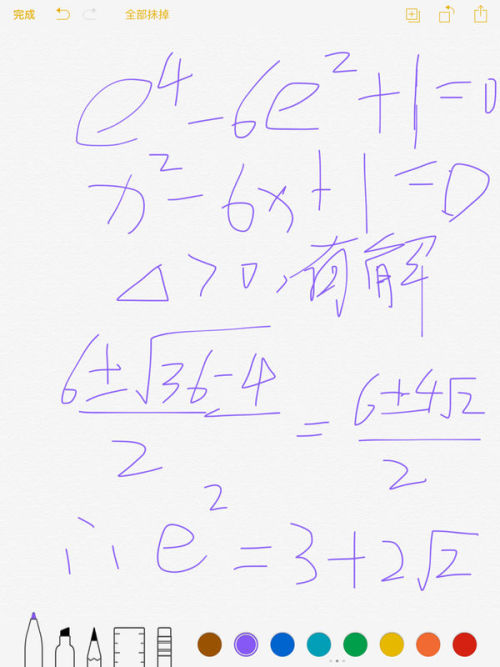 完成 全部抹掉
e⁴-6e²+1=0
x²-6x+1=0
△>0,有解
(6±√(36-4))/2 = (6±4√2)/2
∴ e²=3+2√2